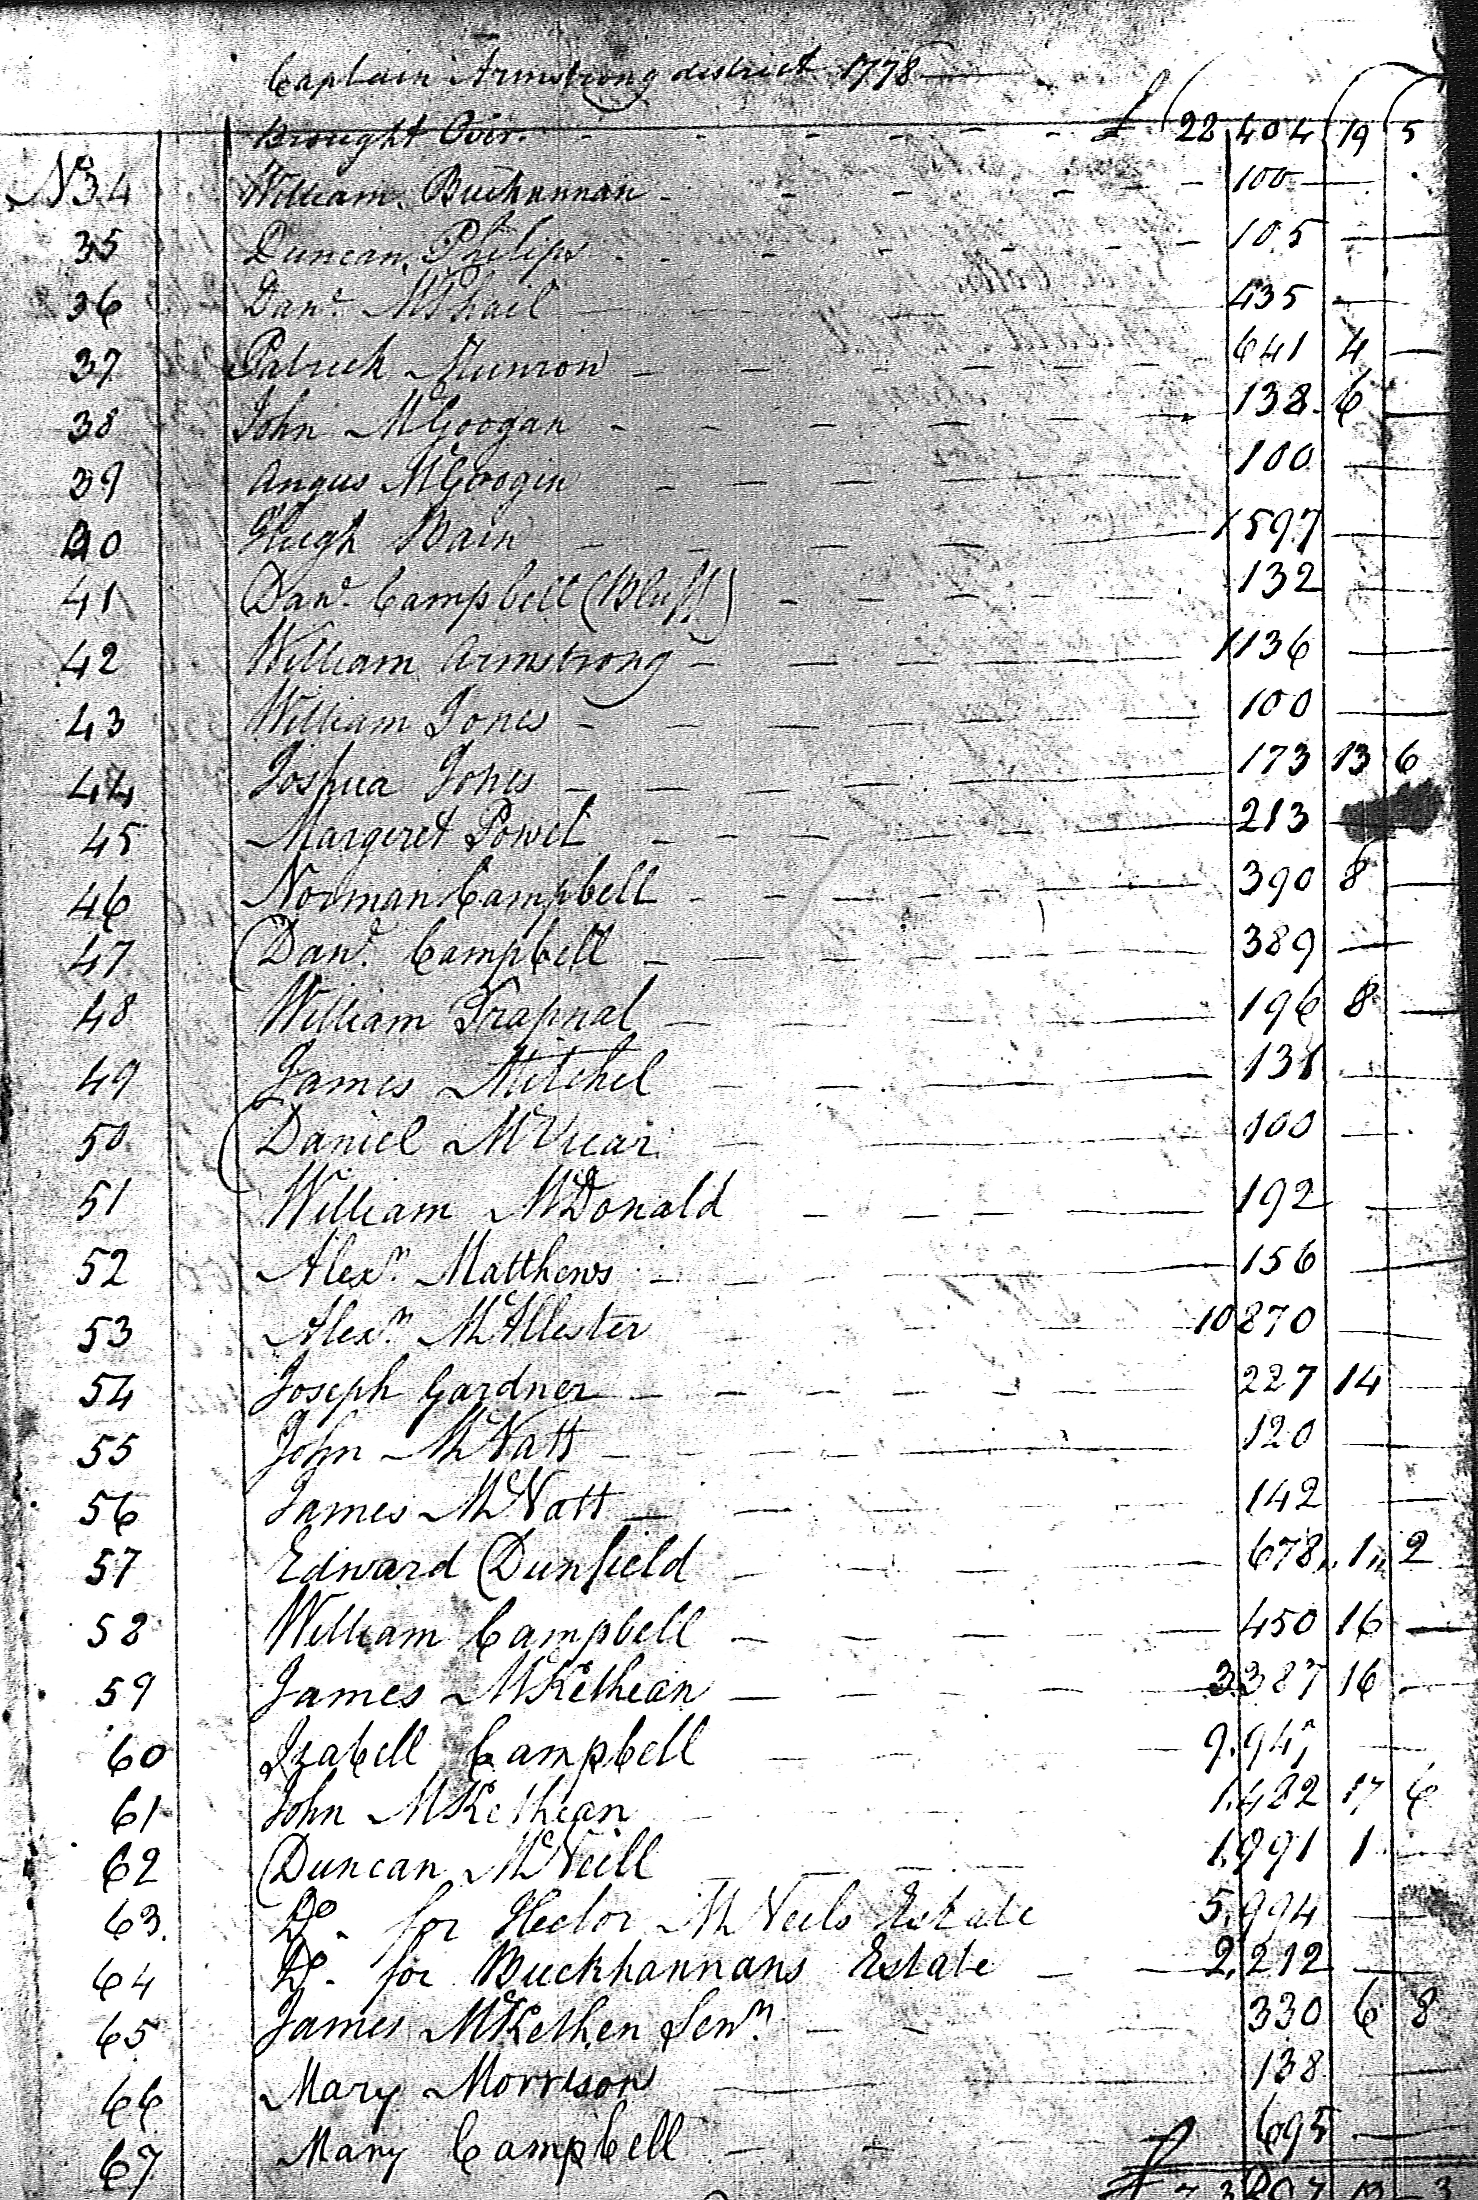 Captain Armstrong district 1778
Brought Over. - - - - - £ 22 404 19 5
No 34 William Buchannan - - - - 100 —
35 Duncan Philips - - - - 105 —
36 Danl. McPhail - - - - 435 —
37 Patrick Munrow - - - - 641 4 —
38 John McGoogan - - - - 138 6 —
39 Angus McGoogin - - - - 100 —
40 Hugh Bain - - - - 1597 —
41 Danl. Campbell (Bluff) - - - - 132 —
42 William Armstrong - - - - 1136 —
43 William Jones - - - - 100 —
44 Joshua Jones - - - - 173 13 6
45 Margeret Powel - - - - 213 —
46 Norman Campbell - - - - 390 8 —
47 Danl. Campbell - - - - 389 —
48 William Trapnal - - - - 196 8 —
49 James Mitchel - - - - 131 —
50 Daniel McVicar - - - - 100 —
51 William McDonald - - - - 192 —
52 Alexr. Matthews - - - - 156 —
53 Alexr. McAllester - - - - 10870 —
54 Joseph Gardner - - - - 227 14 —
55 John McNatt - - - - 120 —
56 James McNatt - - - - 142 —
57 Edward Dunfield - - - - 678 " 1 " 2
58 William Campbell - - - - 450 16 —
59 James McKethean - - - - 3.387 16 —
60 Izabell Campbell - - - - 9.947 —
61 John McKethean - - - - 1.482 17 6
62 Duncan McNeill - - - - 1.991 1 —
63. Do. for Hector McNeils Estate 5.994 —
64 Do. for Buckhannans Estate - - 2.212 —
65 James McKethen Senr. - - - 330 6 8
66 Mary Morrison - - - - 138 —
67 Mary Campbell - - - - 695 —
£ 73 13 3